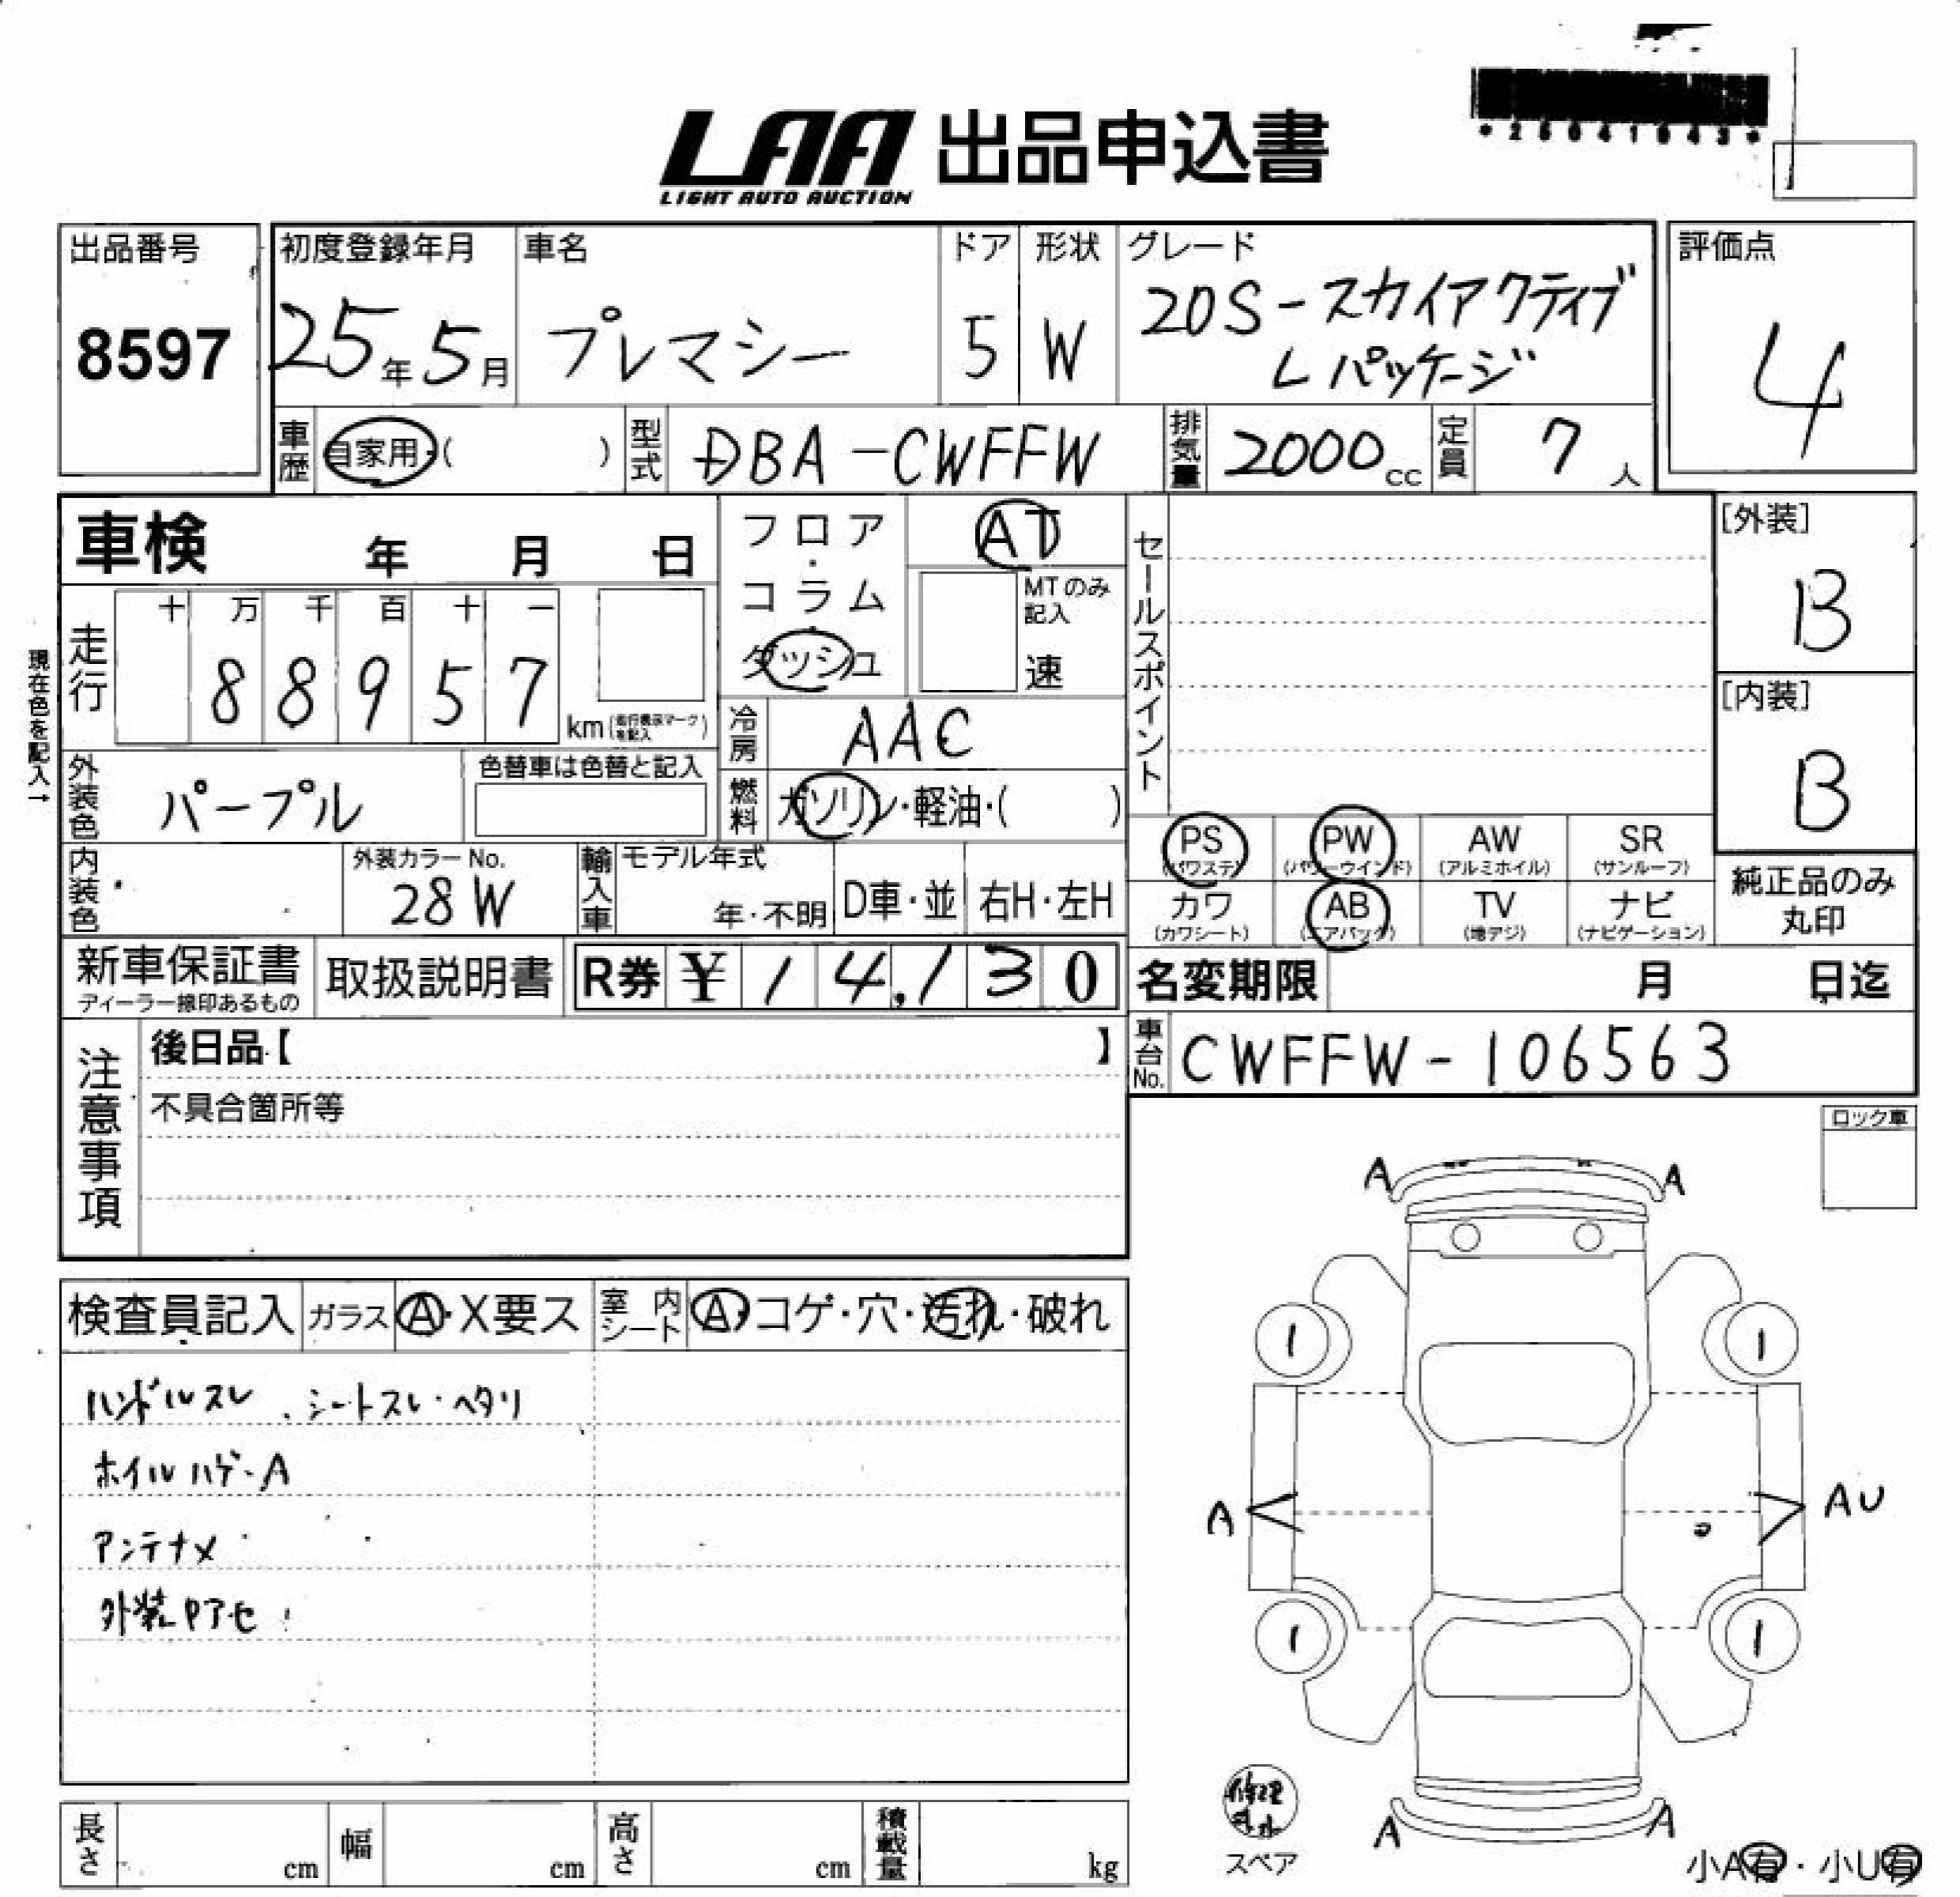 LAA 出品申込書
LIGHT AUTO AUCTION
*26041043*
出品番号
8597
初度登録年月
25年5月
車名
プレマシー
ドア
5
形状
W
グレード
20S-スカイアクティブ
Lパッケージ
評価点
4
車歴
自家用・( )
型式
DBA-CWFFW
排気量
2000cc
定員
7人
車検 年 月 日
フロア・コラム・ダッシュ
AT
MTのみ記入
速
セールスポイント
[外装]
B
[内装]
B
現在色を記入→
走行
十 万 千 百 十 一
8 8 9 5 7
km(走行表示マークを記入)
冷房
AAC
外装色
パープル
色替車は色替と記入
燃料
ガソリン・軽油・( )
PS
(パワステ)
PW
(パワーウインド)
AW
(アルミホイル)
SR
(サンルーフ)
カワ
(カワシート)
AB
(エアバック)
TV
(地デジ)
ナビ
(ナビゲーション)
純正品のみ
丸印
内装色
外装カラーNo.
28W
輸入車
モデル年式
年・不明
D車・並
右H・左H
新車保証書
ディーラー捺印あるもの
取扱説明書
R券 ¥ 14,130
名変期限 月 日迄
注意事項
後日品【 】
不具合箇所等
車台No.
CWFFW-106563
ロック車
検査員記入
ガラス
A・X要ス
室内シート
A・コゲ・穴・汚れ・破れ
ハンドルスレ、シートスレ・ヘタリ
ホイルハゲ・A
アンテナメ
外装ウアセ
A A
1 1
A AU
1 1
A A
修理キット
スペア
小A有・小U有
長さ cm
幅 cm
高さ cm
積載量 kg